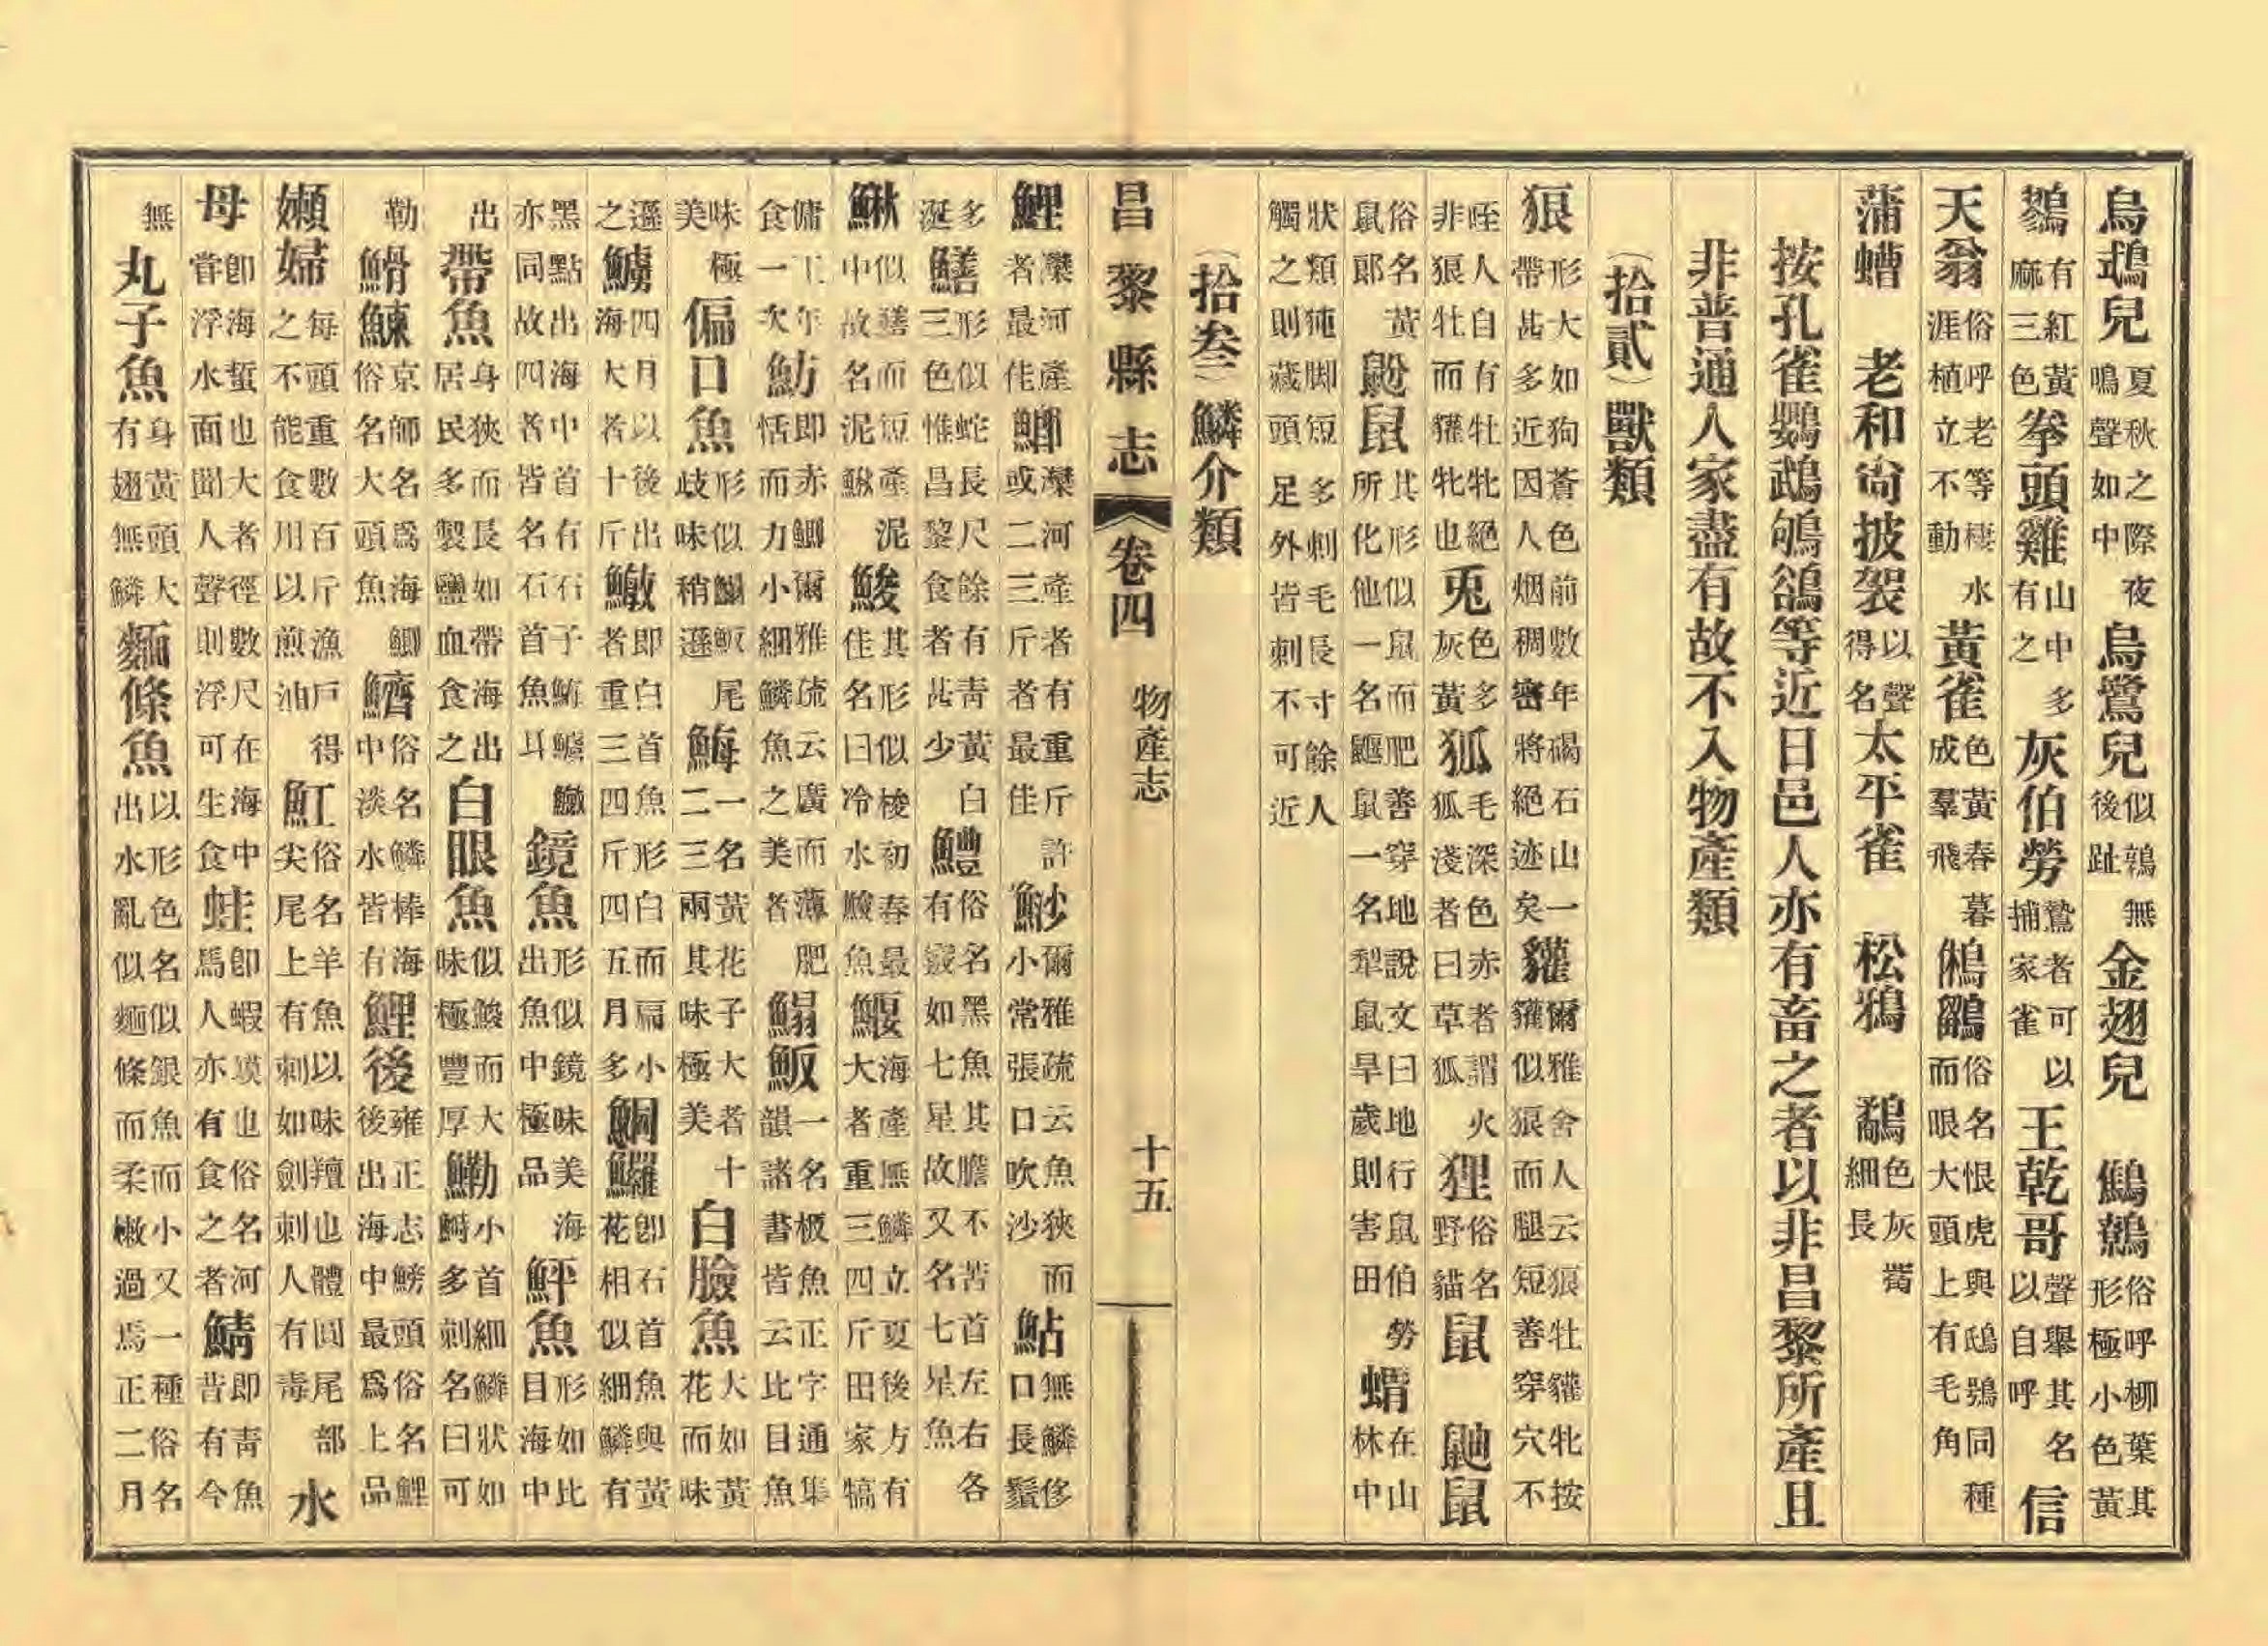 烏䳇兒夏秋之際夜鳴聲如中烏鷺兒似鶉無後趾金翅兒 鷦鷯俗呼柳葉其形極小色黃
鷚有紅黃麻三色拳頭雞山中多有之灰伯勞鷙者可以捕家雀王乾哥聲舉其名以自呼信
天翁俗呼老等棲水涯植立不動黃雀色黃春暮成羣飛鵂鶹俗名恨虎與鴟鴞同種而眼大頭上有毛角
蒲螬 老和尙披袈以聲得名太平雀 松鴉 鷸色灰觜細長
按孔雀鸚鵡鴝鵒等近日邑人亦有畜之者以非昌黎所產且
非普通人家盡有故不入物產類
(拾貳)獸類
狼形大如狗蒼色前數年碣石山一帶甚多近因人烟稠密將絕迹矣獾爾雅舍人云狼牡獾牝按獾似狼而腿短善穿穴不
咥人自有牡牝絕非狼牡而獾牝也兎色多灰黃狐毛深色赤者謂火狐淺者曰草狐狸俗名野貓鼠 鼬鼠
俗名黃鼠郎鼢鼠其形似鼠而肥善穿地說文曰地行鼠伯勞所化他一名鼴鼠一名犁鼠旱歲則害田蝟在山林中
狀類㹠脚短多刺毛長寸餘人觸之則藏頭足外皆刺不可近
(拾叁)鱗介類
昌黎縣志 卷四 物產志 十五
鯉灤河產者最佳鯽灤河產者有重斤許或二三斤者最佳魦爾雅疏云魚狹而小常張口吹沙鮎無鱗侈口長鬚
多涎鱔形似蛇長尺餘有靑黃白三色惟昌黎食者甚少鱧俗名黑魚其膽不苦首左右各有竅如七星故又名七星魚
鰍似鱔而短產泥中故名泥鰍鮻其形似梭初春最佳名曰冷水鮻魚鰋海產無鱗立夏後方有大者重三四斤田家犒
傭工年食一次魴卽赤鯿爾雅疏云廣而薄肥恬而力小細鱗魚之美者鰨魬一名板魚正字通集韻諸書皆云比目魚
味極美偏口魚形似鰨魬尾歧味稍遜䱕一名黃花子大者十二三兩其味極美白臉魚大如黃花而味
遜之鱸四月以後出海大者十斤卽白首魚形白而扁小者重三四斤四五月多鮦鱺卽石首魚與黃花相似細鱗有
黑點出海中首有石子鮪鱸亦同故四者皆名石首魚耳鏡魚形似鏡味美海出魚中極品鮃魚形如比目海中
出帶魚身狹而長如帶海出居民多製鹽血食之白眼魚似鮻而大味極豐厚鰳小首細鱗狀如鰣多刺名曰可
勒䱻鰊京師名爲海鯽俗名大頭魚鱭俗名鱗棒海中淡水皆有鯉後雍正志鰟頭俗名鯉後出海中最爲上品
嬾婦每頭重數百斤漁戶得之不能食用以煎油魟俗名羊魚以味羶也體圓尾部尖尾上有刺如劍刺人有毒水
母卽海蜇也大者徑數尺在海中嘗浮水面聞人聲則浮可生食蛙卽蝦蟆也俗名河馬人亦有食之者鯖卽靑魚昔有今
無丸子魚身黃頭大有翅無鱗麵條魚以形色名似銀魚而小又一種俗名出水亂似麵條而柔嫩過焉正二月